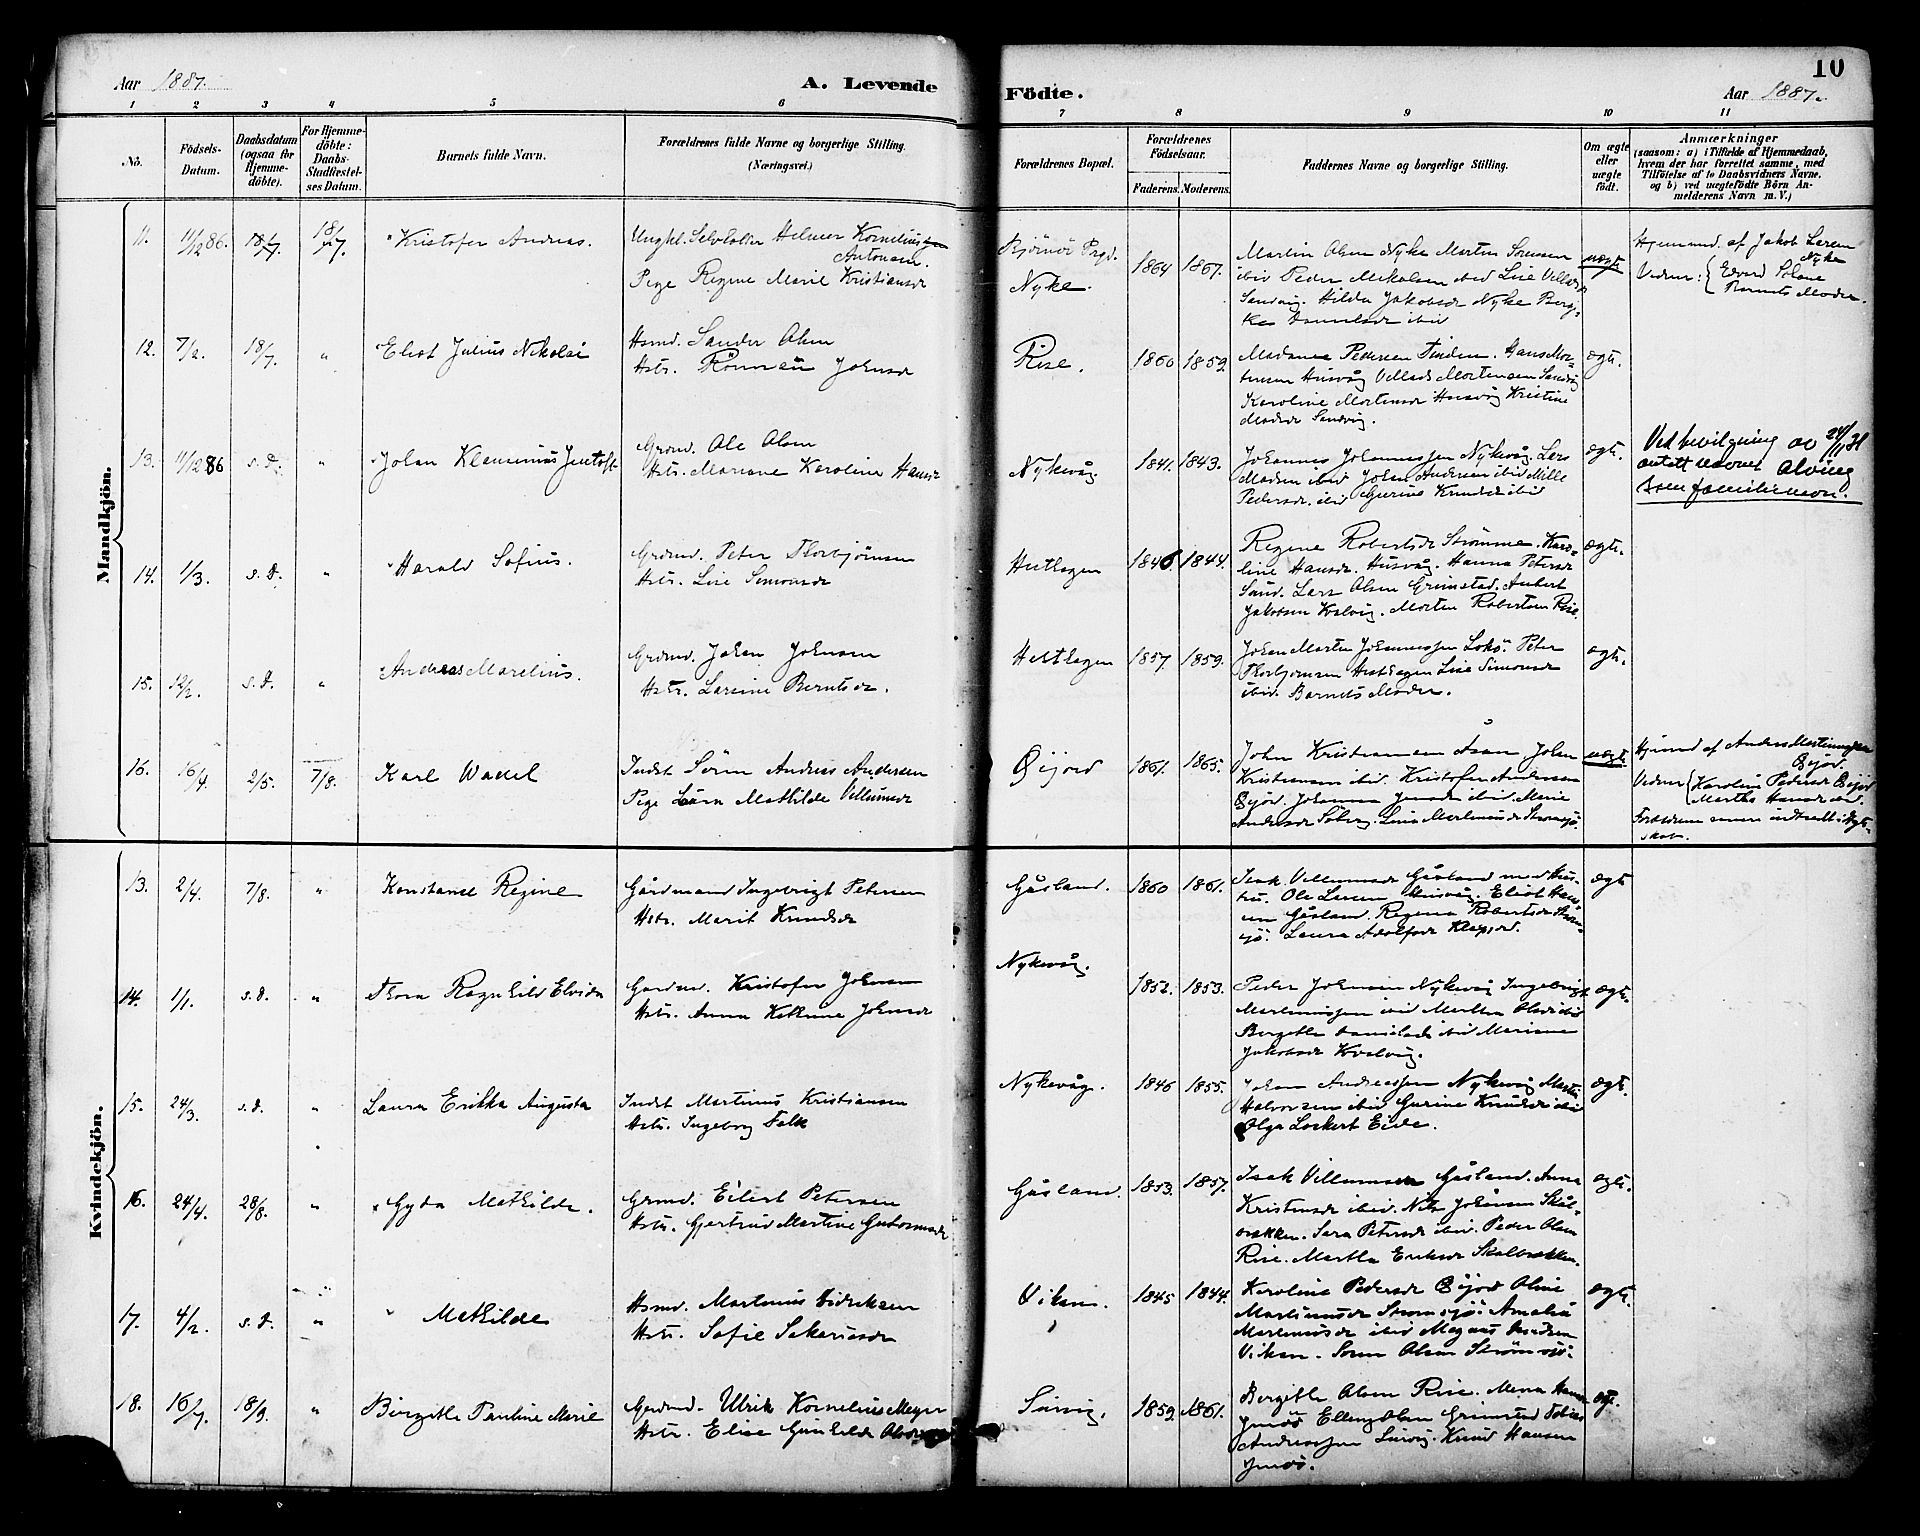 Aar 1887.
A. Levende
Födte.
Aar 1887.
10
1 2 3 4 5 6 7 8 9 10 11
No.
Födsels-Datum.
Daabsdatum (ogsaa for Hjemme-döbte).
For Hjemme-döbte: Daabs-Stadfæstel-ses Datum.
Barnets fulde Navn.
Forældrenes fulde Navne og borgerlige Stilling.
(Næringsvei.)
Forældrenes Bopæl.
Forældrenes Födselsaar.
Faderens. Moderens.
Faddernes Navne og borgerlige Stilling.
Om ægte eller uægte födt.
Anmærkninger
(saasom: a) i Tilfælde af Hjemmedaab,
hvem der har forrettet samme, med
Tilföielse af to Daabsvidners Navne.
og b) ved uægtefödte Börn An-
melderens Navn m. V.)
Mandkjön.
11. 11/12 86. 18/7 18/7 Kristofer Andreas.
Ungkl. Helmer Kornelius
Antonsen.
Pige Regine Marie Kristiansdr
Nyke.
1864 1867.
Martin Olsen Nyke Morten Sörensen
ibid Peder Mikalsen ibid Lise
Sandvig. Hilda Jakobsdr Nyke
uægte
Hjemmed. af Jakob Larsen
Nyke
Vidner: Edvard
Barnets Moder.
12. 7/2. 18/7. " Eliot Julius Nikolai
Hsmd. Sander Olsen
Hstr. Johnsdr
Rise.
1860 1859
Pedersen Tinden. Hans Mor-
tensen Husvåg Mortensen Sandvig
Karoline Mortensdr Husvåg Kristine
Sandvig.
ægte.
13. 11/12 86 s.d. " Johan Klausenius Jentoft
Grdmd. Ole Olsen
Hstr. Mariane Karoline Hansdr
Nykevåg.
1841. 1843.
Johannes Johannessen Nykevåg. Lars
Madsen ibid Johan Andersen ibid Mille
Pedersdr. ibid Gurine Knudsdr ibid
ægte.
Ved bevilgning av
antatt navnet Alving
som familienavn.
14. 1/3. s.d. " Harald Sofius.
Grdmd. Peter Thorbjörnsen
Hstr. Lise Simonsdr
Hesthagen
1846 1844.
Regine Robertsdr Strömme. Karo-
line Hansdr. Husvåg. Hanna Petersdr
Sund. Lars Olsen Grimstad.
Jakobsen Kvalvig. Morten Robertsen Rise.
ægte.
15. 12/2. s.d. " Andreas Marelius.
Grdmd. Johan Johnsen
Hstr. Larsine Berntsdr.
Hesthagen
1857. 1859.
Johan Martin Johannessen Peter
Thorbjörnsen Hesthagen Lise Simonsdr
ibid. Barnets Moder.
ægte.
16. 16/4. 2/5. 7/8. Karl Wadel
Indst Sören Andreas Andersen
Pige Mathilde Villumsdr
Öijord
1861. 1865.
John Kristiansen Johan
Kristiansen ibid. Kristofer Andersen
Öijord. Johanna Jensdr ibid. Marie
Andersdr
uægte.
Hjemmd af Anders Martinussen
Öijord.
Vidner Karoline Pedersdr Öijord
Martha Hansdr ibid.
Forældrene senere indtraadt i Ægte-
skab.
Kvindekjön.
13. 2/4. 7/8. " Konstanse Regine
Gårdmand Ingebrigt Petersen
Hstr. Marit Knudsdr
Gåsland.
1860 1861.
Isak Villumsen Gåsland med Hus-
tru. Ole Larsen Husvåg. Eliot Han-
sen Gåsland. Regina Robertsdr Ström-
sjö. Laura Adolfsdr
ægte
14. 1/1. s.d. " Thora Ragnhild Elvida
Gårdmd. Kristofer Johnsen
Hstr. Anna Kathrine Johnsdr
Nykevåg.
1852. 1853.
Peder Johnsen Nykevåg Ingebrigt
Martinussen ibid Martha
Bergitte Danielsdr ibid Mariane
Jakobsdr Kvalvig.
ægte.
15. 24/3. s.d. " Laura Erikka Augusta
Indst Martinus Kristiansen
Hstr. Ingeborg Falk
Nykevåg.
1846 1855.
Johan Andreassen Nykevåg Martin
Halvorsen ibid Gurine Knudsdr ibid
Olga Lockert Eide.
ægte.
16. 24/4. 28/8. " Gyda Mathilde.
Grmd. Eilert Petersen
Hstr. Gjertrud Martine
Gåsland.
1853. 1857.
Isak Villumsen Gåsland. Anna
Kristensdr ibid. Nils Johnsen Skål-
brækken. Sara Petersdr ibid. Peder Olsen
Rise. Martha Eriksdr Skalbrækken.
ægte.
17. 4/2. s.d. " Mathilde
Hsmd. Martinus Didriksen
Hstr. Sofie Sakariasdr
Viken.
1845 1844.
Karoline Pedersdr Öijord Oline
Martinusdr Strömsjö. Amalia
Martinusdr ibid Magnus
Viken. Sören Olsen Strömsjö.
ægte.
18. 16/7. 18/9. " Birgitte Pauline Marie
Gardmd. Ulrik Kornelius Meyer
Hstr. Elise Gunhilda
1859. 1861.
Bergitte Olsen Rise.
Olsen Grimsund Tobias
Andreassen Knud Hansen
ægt.